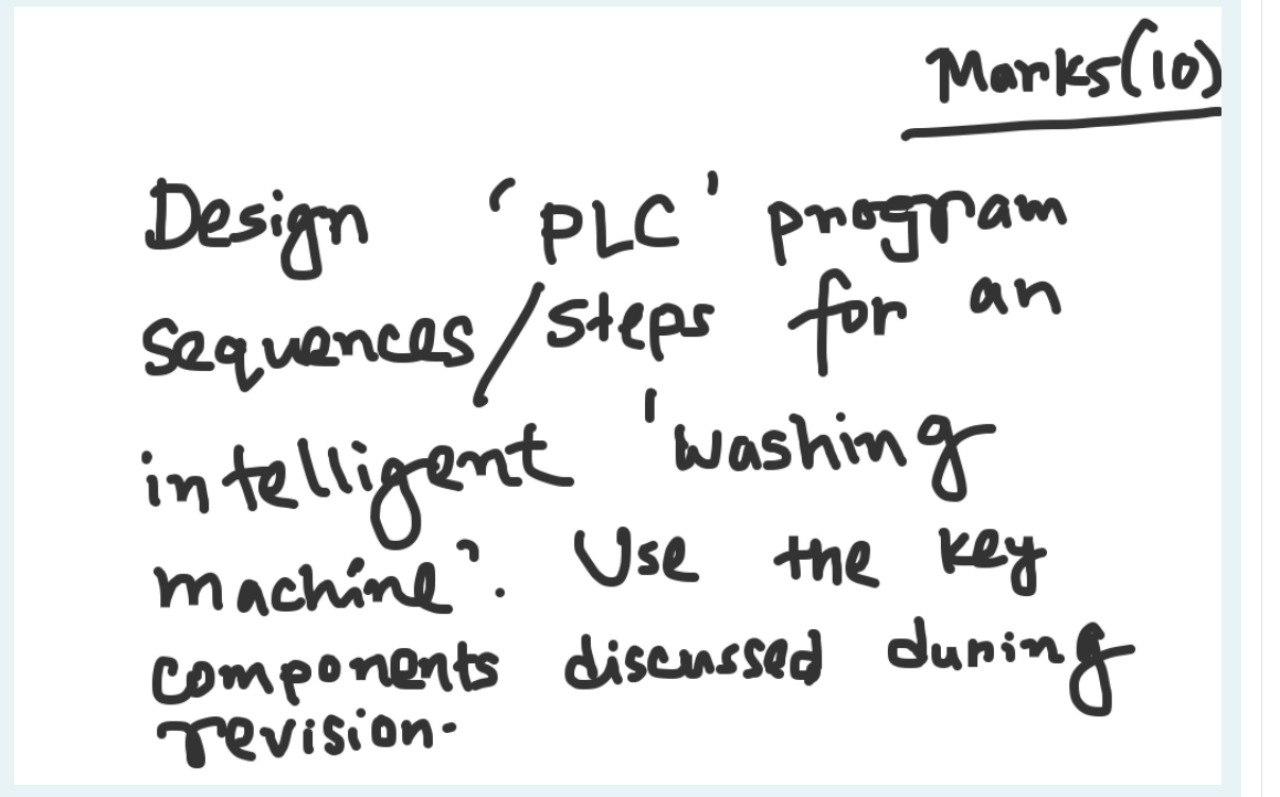 Marks(10)
Design 'PLC' program
sequences/steps for an
intelligent 'washing
machine'. Use the key
components discussed during
revision.